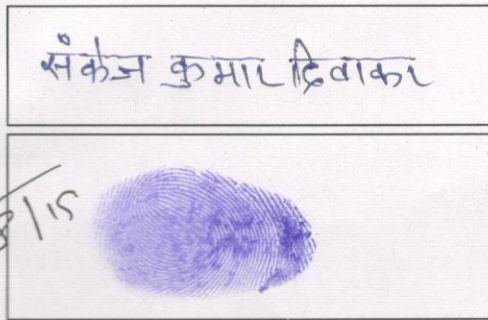 संकेज कुमार दिवाकर
/15